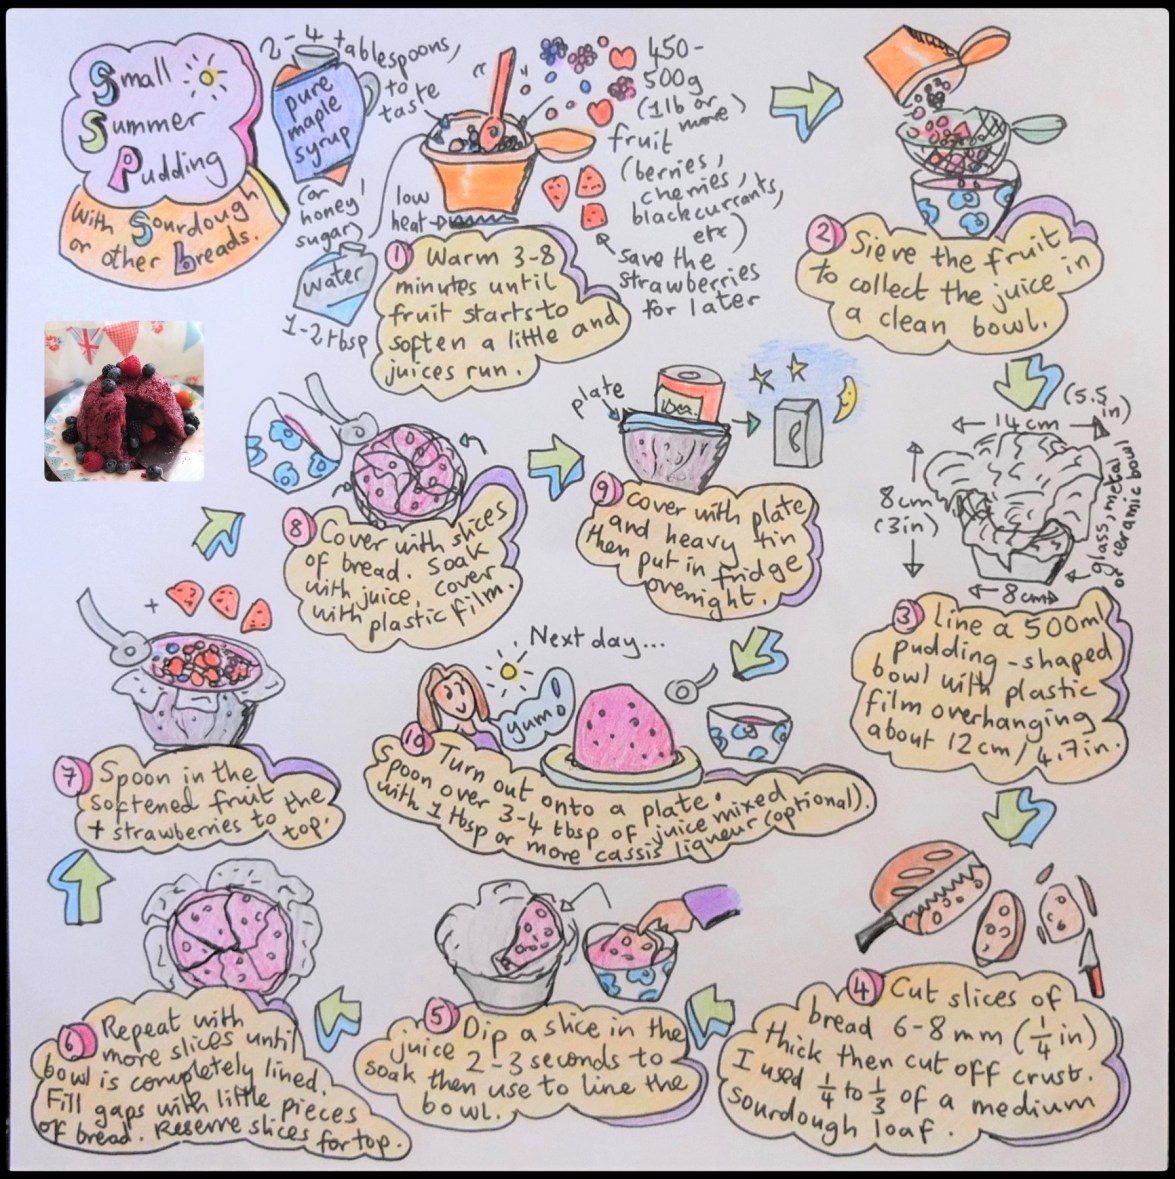 Small
Summer
Pudding
With Sourdough
or other breads.
2-4 tablespoons,
to
taste
pure
maple
syrup
(or
honey /
sugar)
water
1-2 tbsp
low
heat
450-
500g
(1lb or
more)
fruit
(berries,
cherries,
blackcurrants,
etc)
save the
strawberries
for later
1 Warm 3-8
minutes until
fruit starts to
soften a little and
juices run.
2 Sieve the fruit
to collect the juice in
a clean bowl.
14cm
(5.5
in)
8cm
(3in)
8cm
glass, metal
or ceramic bowl
3 line a 500ml
pudding-shaped
bowl with plastic
film overhanging
about 12cm/4.7in.
4 Cut slices of
bread 6-8mm (1/4 in)
thick then cut off crust.
I used 1/4 to 1/3 of a medium
sourdough loaf.
5 Dip a slice in the
juice 2-3 seconds to
soak then use to line the
bowl.
6 Repeat with
more slices until
bowl is completely lined.
Fill gaps with little pieces
of bread. Reserve slices for top.
+
7 Spoon in the
softened fruit
+ strawberries to the
top.
8 Cover with slices
of bread. Soak
with juice, cover
with plastic film.
plate
9 cover with plate
and heavy tin
then put in fridge
overnight.
Next day...
yum!
10 Turn out onto a plate.
Spoon over 3-4 tbsp of juice mixed
with 1 tbsp or more cassis liqueur (optional).